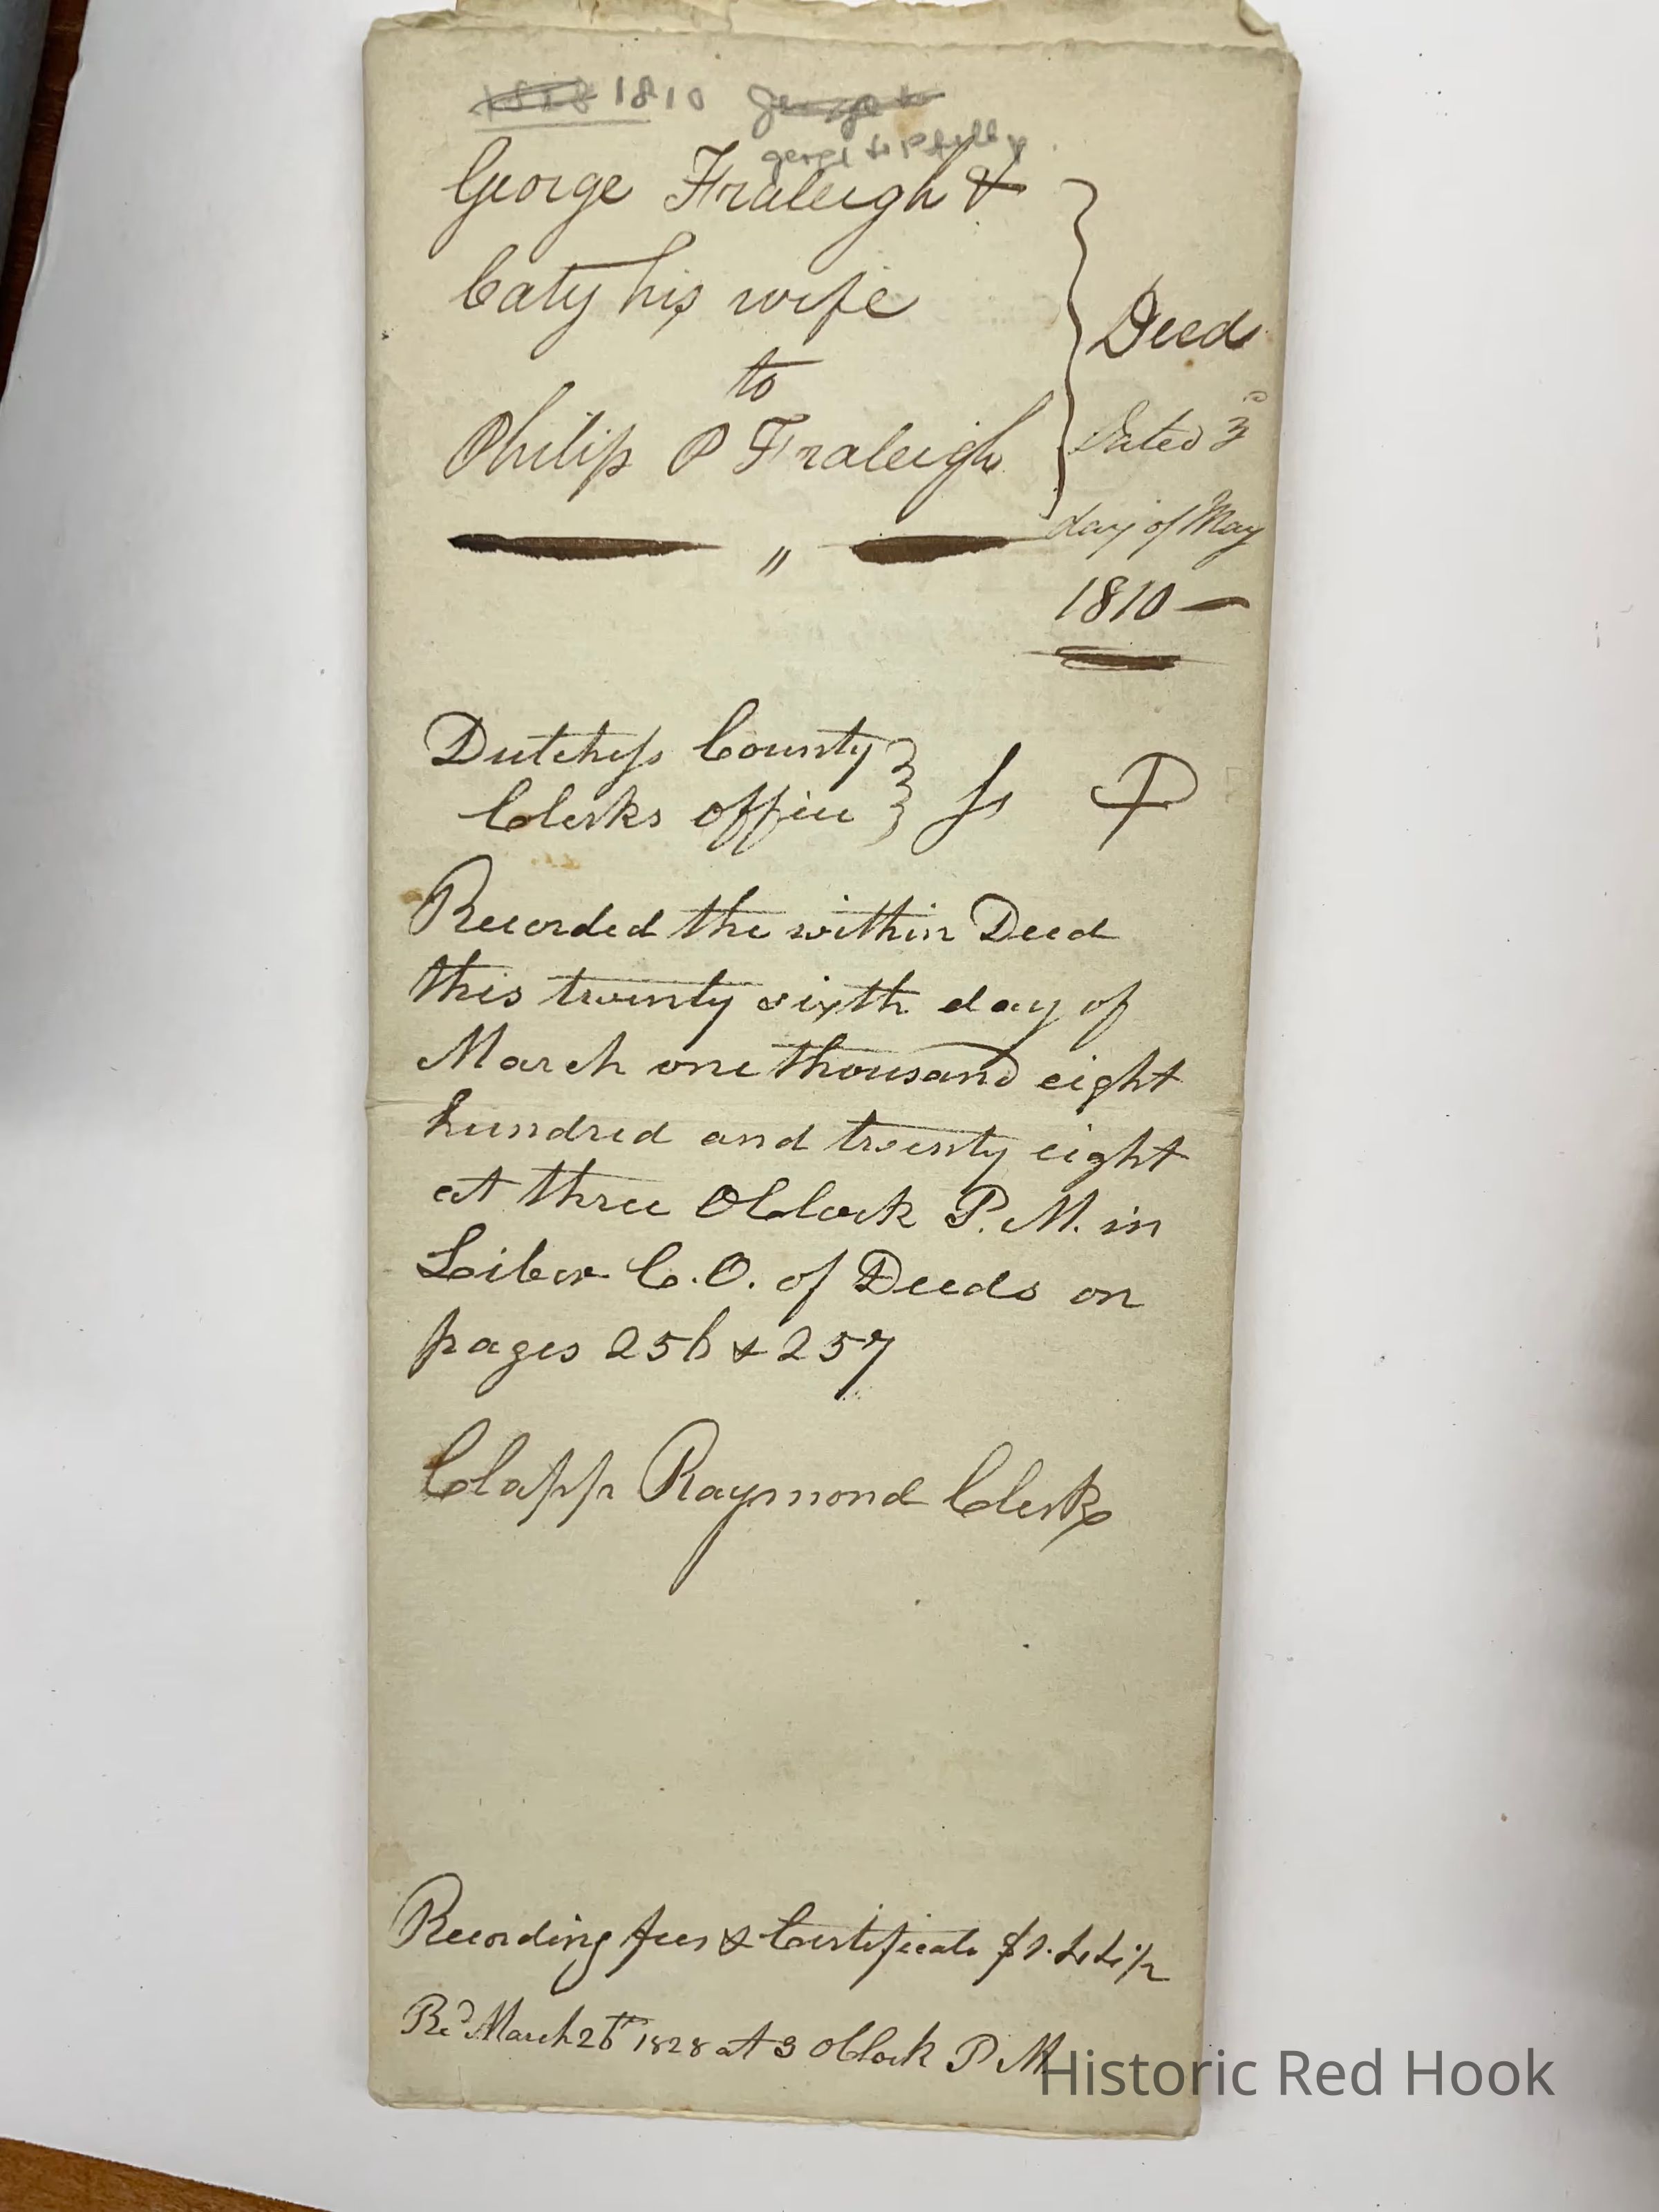 1810
George Fraleigh &
Caty his wife
to
Philip P Fraleigh
Deed
Dated 3d
day of May
1810 —
Dutchess County
Clerks office
ss
Recorded the within Deed
this twenty sixth day of
March one thousand eight
hundred and twenty eight
at three OClock P.M. in
Liber C.O. of Deeds on
pages 256 & 257
Clapp Raymond Clerk
Recording fees & Certificate
Recd March 26th 1828 at 3 OClock P M
Historic Red Hook